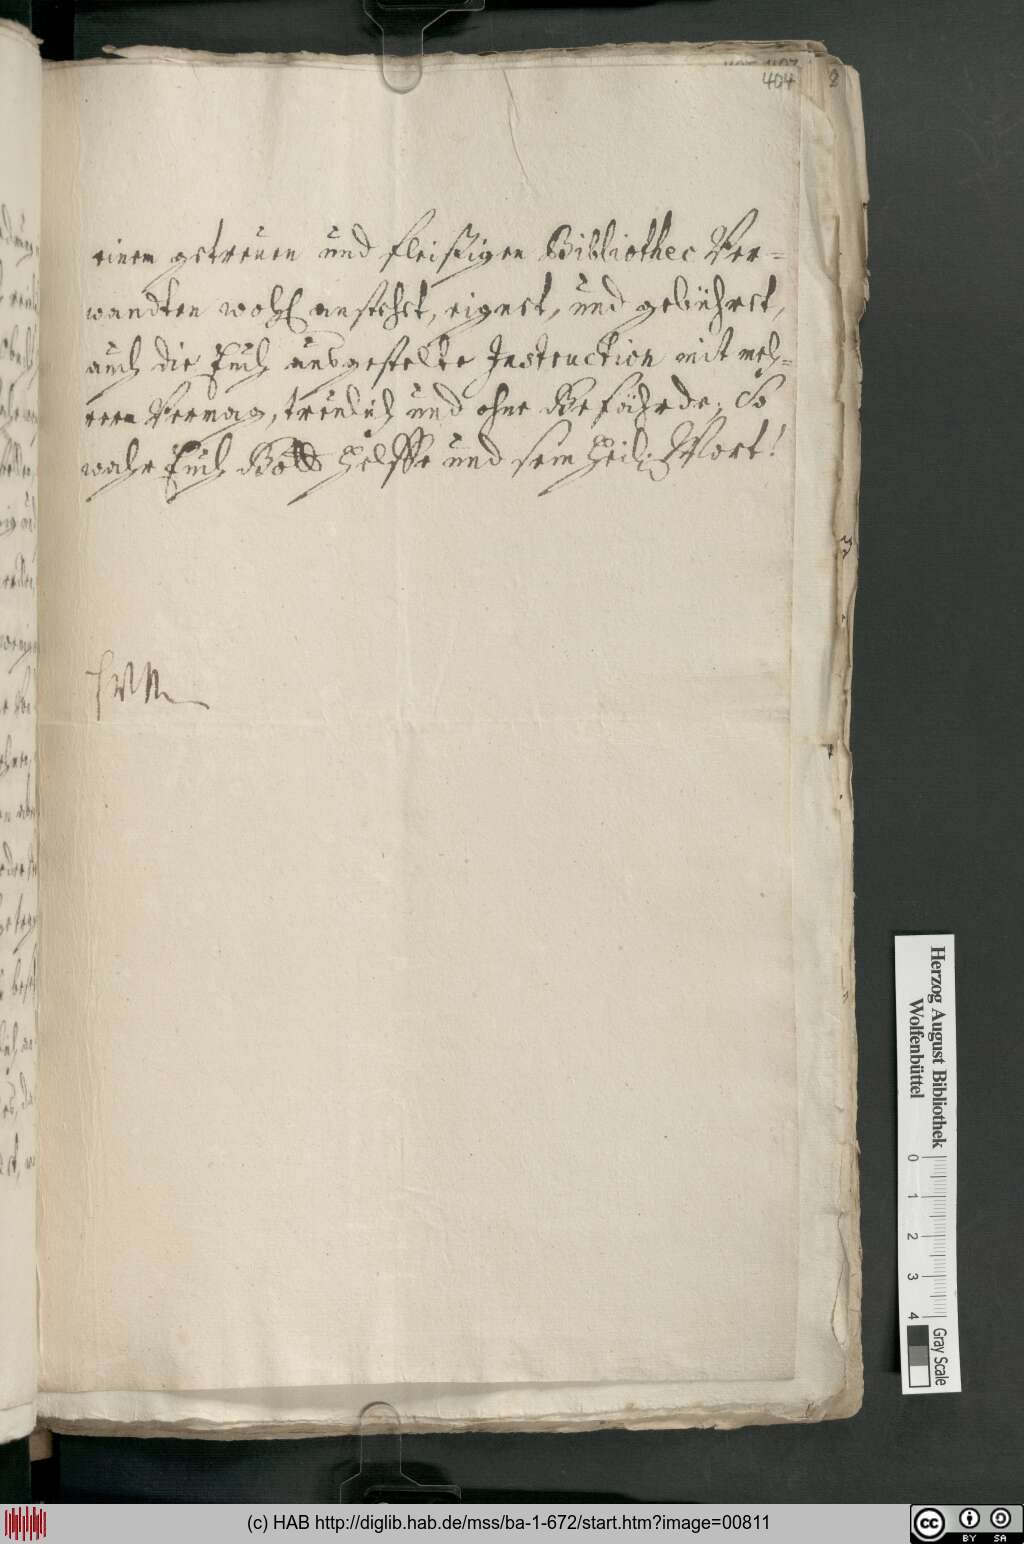 404
8
einem getreuen und fleißigen Bibliothec Ver=
wandten wohl anstehet, eignet, und gebühret,
auch die Euch ausgestelte Instruction mit meh=
rern Vermag, treulich und ohne Gefährde, So
wahr Euch Gott helffe und sein heil: Wort!
Herzog August Bibliothek
Wolfenbüttel
0 1 2 3 4
Gray Scale
(c) HAB http://diglib.hab.de/mss/ba-1-672/start.htm?image=00811
cc BY SA